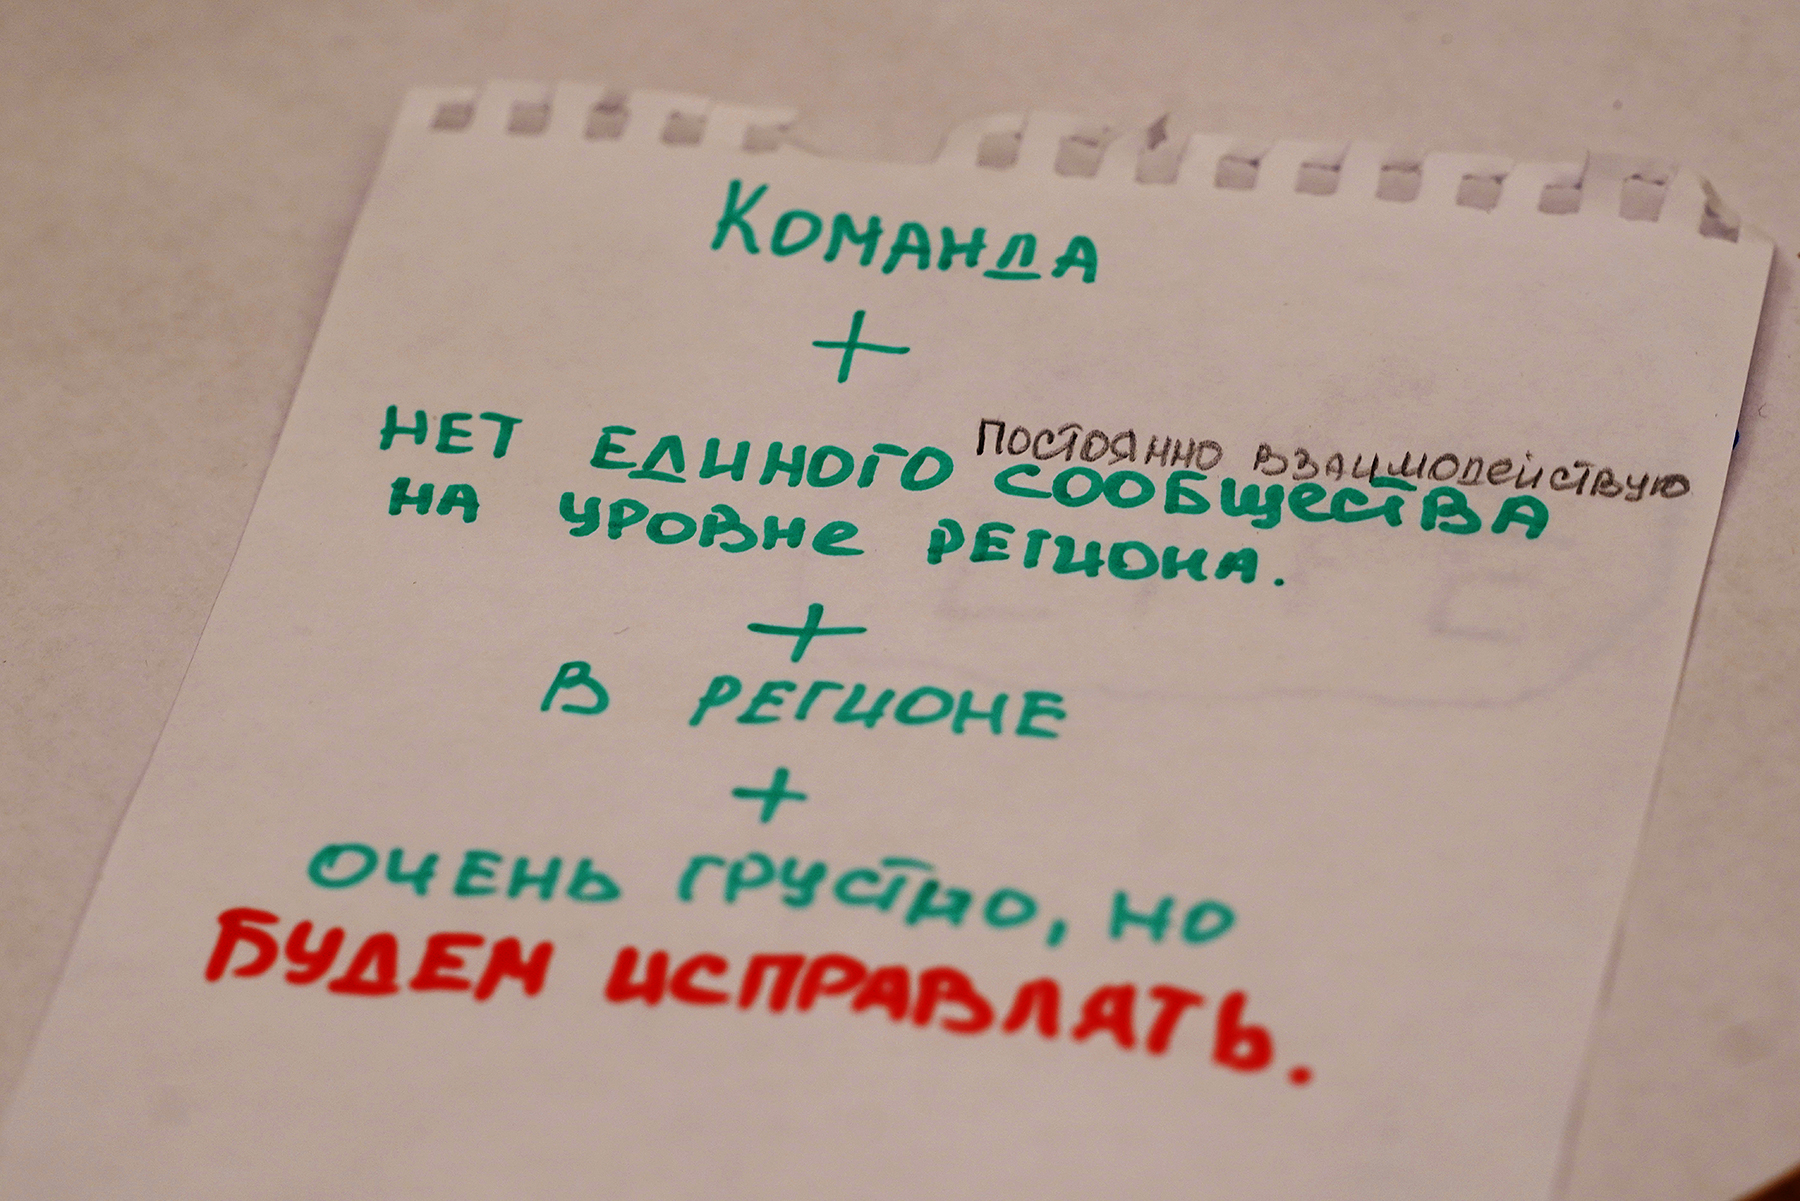 Команда
+
НЕТ ЕДИНОГО СООБЩЕСТВА
ПОСТОЯННО ВЗАИМОДЕЙСТВУЮ
НА УРОВНЕ РЕГИОНА.
+
В РЕГИОНЕ
+
ОЧЕНЬ ГРУСТНО, НО
БУДЕМ ИСПРАВЛЯТЬ.